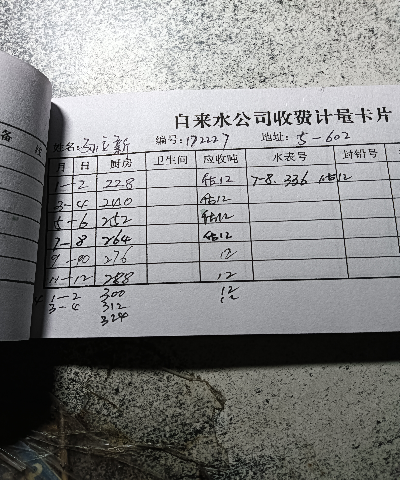 自来水公司收费计量卡片
备
姓名: 新 编号: 172227 地址: 5-602
月 日 厨房 卫生间 应收吨 水表号 封铅号
1-2 228 估12 7-8. 336 估12
3-4 240 估12
5-6 252 估12
7-8 264 估12
9-10 276 12
11-12 288 12
1-2 300 12
3-4 312 12
324